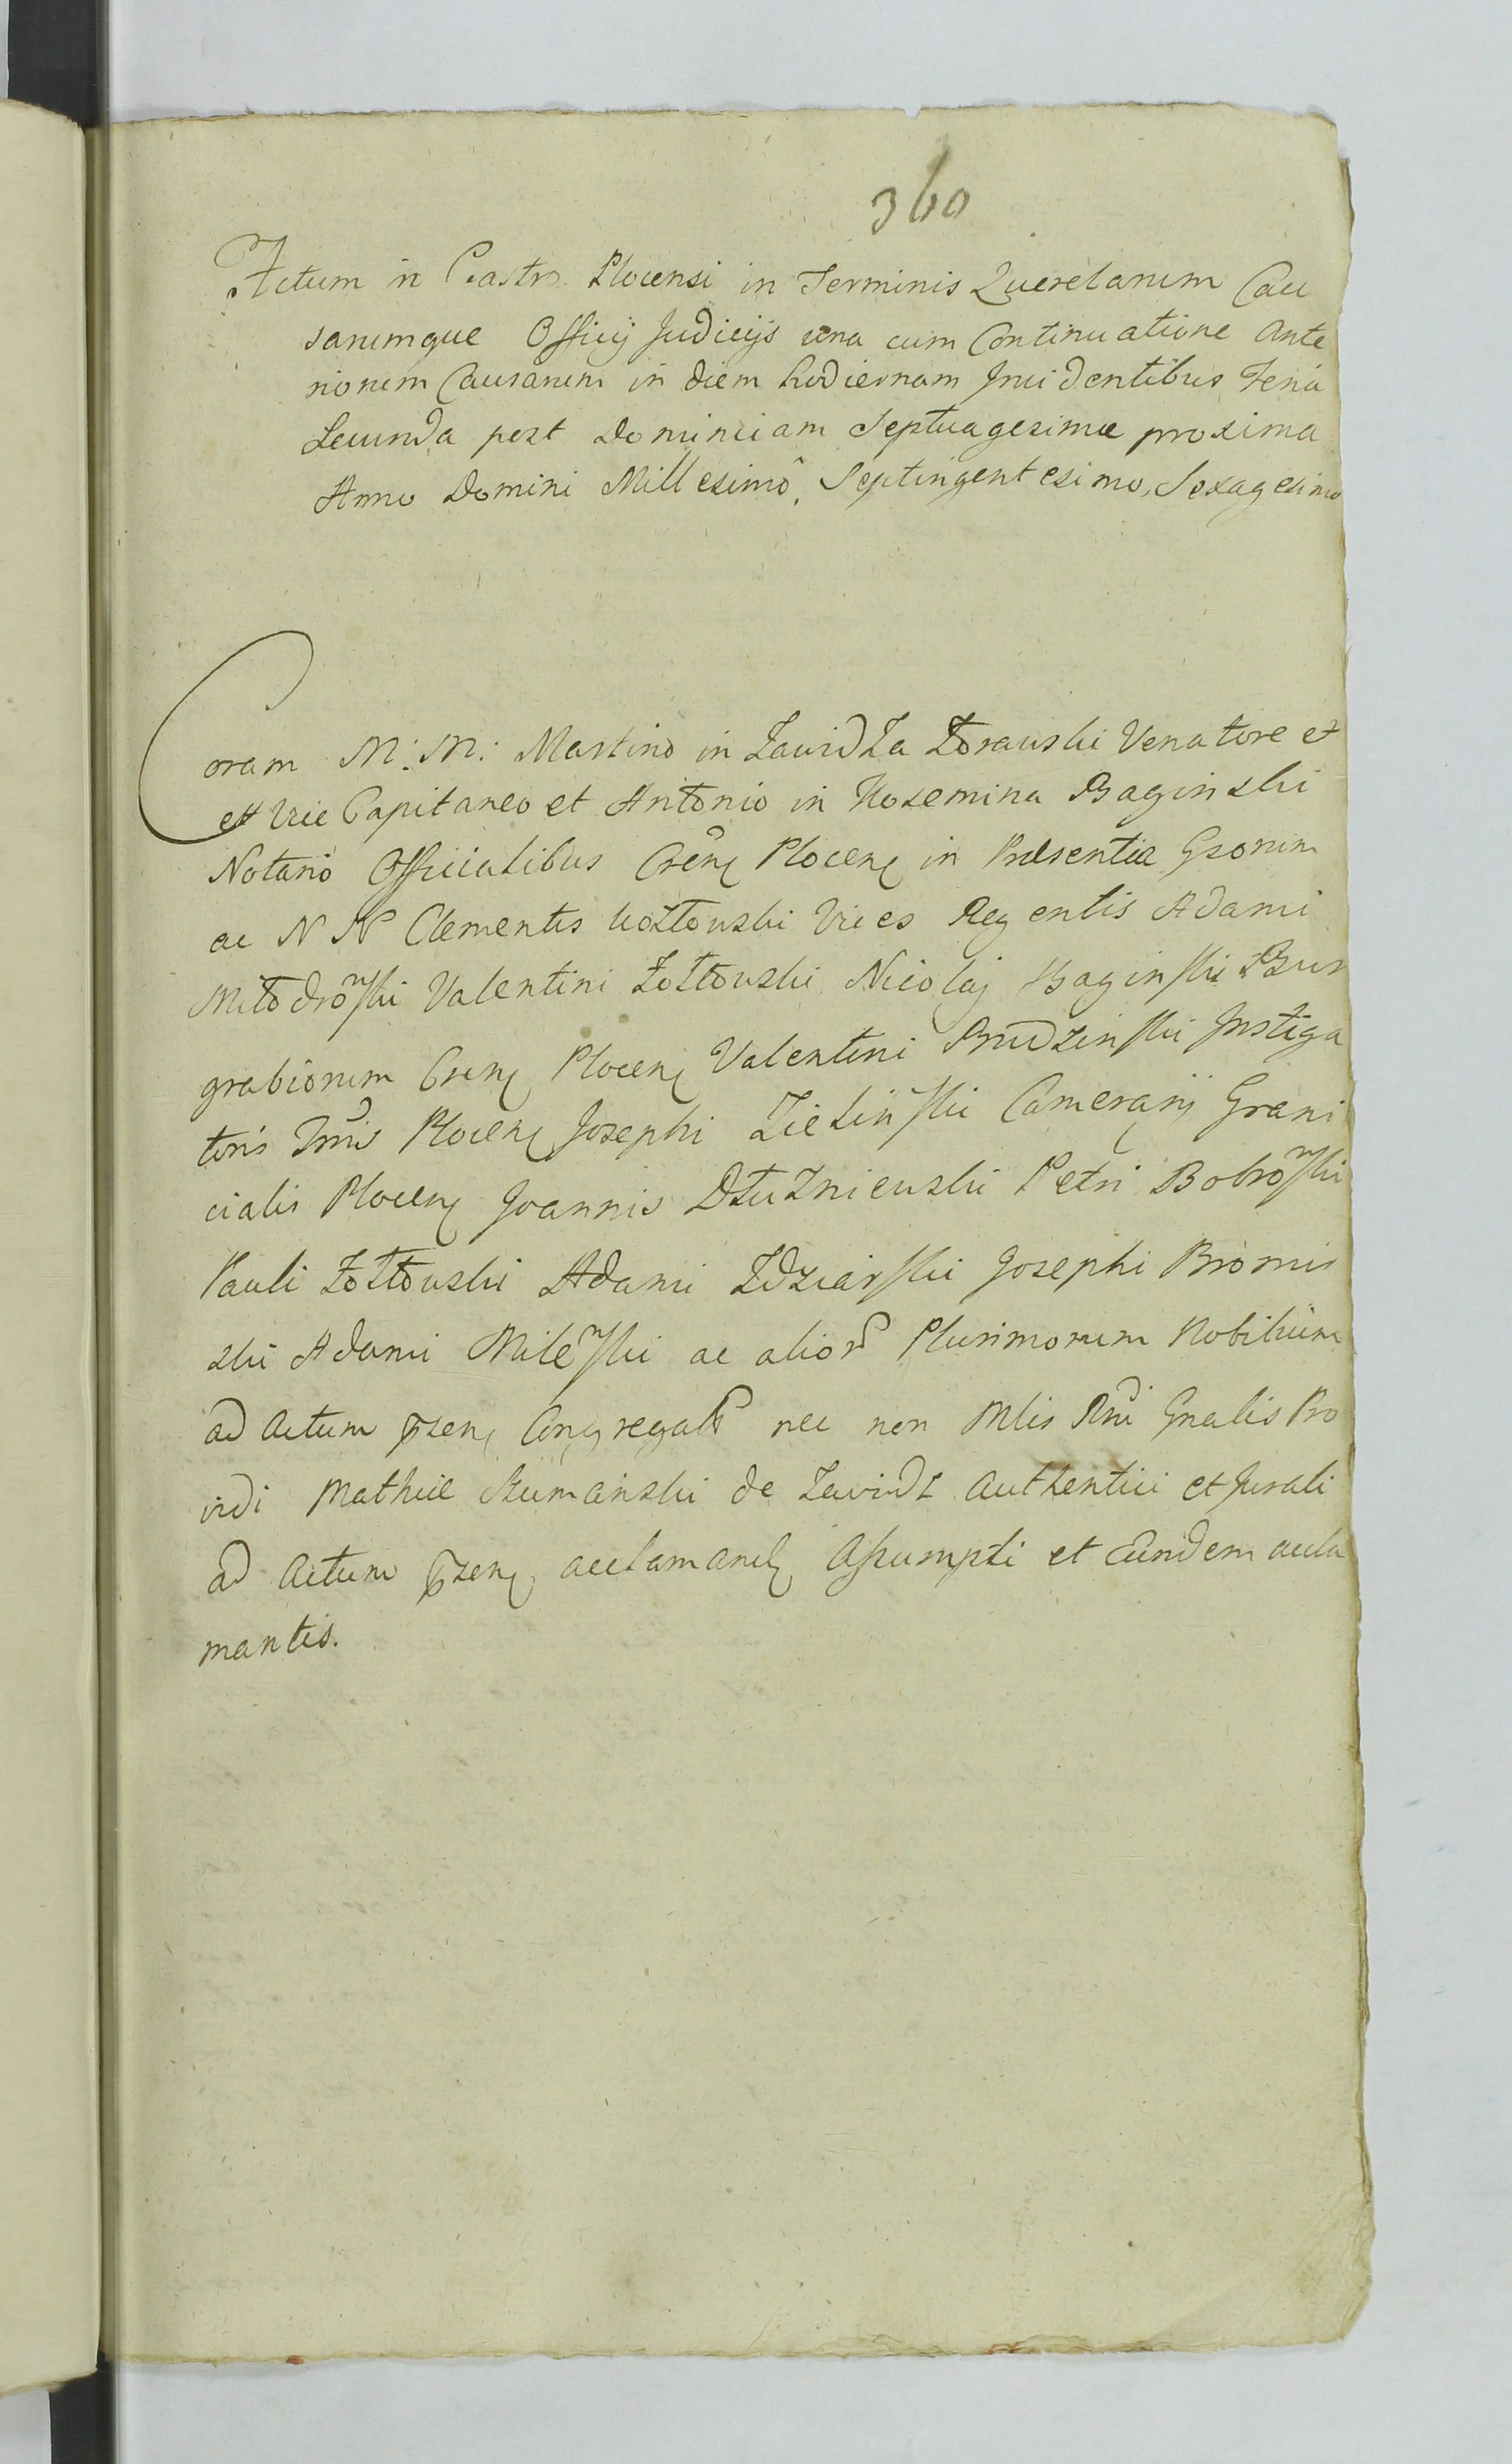 360
Actum in Castro Plocensi in Terminis Querelarum Cau
sarumque Officij Judicijs una cum Continuatione Ante
riorum Causarum in diem hodiernam Incidentibus Feria
Secunda post Dominicam Septuagesimæ proxima
Anno Domini Millesimô, Septingentesimo, Sexagesimo
Coram M: M: Martino in Zawidza Zorawski Venatore et
et Vice Capitaneo et Antonio in Kosemina Baginski
Notario Officialibus Cren Plocen in Præsentia Gsorum
ac N N Clementis Kozłowski Vices Regentis Adami
Miłodrowski Valentini Zołtowski Nicolaj Baginski Bur
grabiorum Cren Plocen Valentini Rudzinski Instiga
toris Plocen Josephi Zielinski Camerarij Grani
cialis Plocen Joannis Dłużniewski Petri Bobrowski
Pauli Zołtowski Adami Zdziarski Josephi Bromir
ski Adami Milewski ac alior Plurimorum Nobilium
ad Actum pzen Congregat nec non Mlis Rni Gnalis Pro
vidi Mathiæ Szumanski de Zawidz Authentici et Jurati
ad Actum pzen acclamand Assumpti et Eundem accla
mantis.